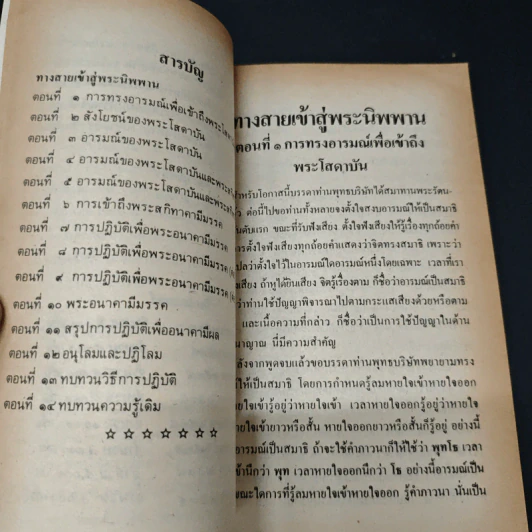 สารบัญ
ทางสายเข้าสู่พระนิพพาน
ตอนที่ ๑ การทรงอารมณ์เพื่อเข้าถึงพระโสดาบัน
ตอนที่ ๒ สังโยชน์ของพระโสดาบัน
ตอนที่ ๓ อารมณ์ของพระโสดาบัน
ตอนที่ ๔ อารมณ์ของพระโสดาบันและพระ
ตอนที่ ๕ อารมณ์ของพระโสดาบันและพระ
ตอนที่ ๖ การเข้าถึงพระสกิทาคามีมรรค
ตอนที่ ๗ การปฏิบัติเพื่อพระอนาคามีมรรค
ตอนที่ ๘ การปฏิบัติเพื่อพระอนาคามีมรรค
ตอนที่ ๙ การปฏิบัติเพื่อพระอนาคามีมรรค
ตอนที่ ๑๐ พระอนาคามีมรรค
ตอนที่ ๑๑ สรุปการปฏิบัติเพื่ออนาคามีผล
ตอนที่ ๑๒ อนุโลมและปฏิโลม
ตอนที่ ๑๓ ทบทวนวิธีการปฏิบัติ
ตอนที่ ๑๔ ทบทวนความรู้เดิม
ทางสายเข้าสู่พระนิพพาน
ตอนที่ ๑ การทรงอารมณ์เพื่อเข้าถึง
พระโสดาบัน
สำหรับโอกาสนี้บรรดาท่านพุทธบริษัทได้สมาทานพระรัตน-
ต่อนี้ไปขอท่านทั้งหลายจงตั้งใจสงบอารมณ์ให้เป็นสมาธิ
นดับแรก ขณะที่รับฟังเสียง ตั้งใจฟังเสียงให้รู้เรื่องทุกถ้อยคำ
การตั้งใจฟังเสียงทุกถ้อยคำแสดงว่าจิตทรงสมาธิ เพราะว่า
ปลว่าตั้งใจไว้ในอารมณ์ใดอารมณ์หนึ่งโดยเฉพาะ เวลาที่เรา
ฟังเสียง ถ้าหูได้ยินเสียง จิตรู้เรื่องตาม ก็ชื่อว่าอารมณ์เป็นสมาธิ
ว่าท่านใช้ปัญญาพิจารณาไปตามกระแสเสียงด้วยหรือตาม
และเนื้อความที่กล่าว ก็ชื่อว่าเป็นการใช้ปัญญาในด้าน
นาญาณ นี่มีความสำคัญ
หลังจากพูดจบแล้วขอบรรดาท่านพุทธบริษัทพยายามทรง
ให้เป็นสมาธิ โดยการกำหนดรู้ลมหายใจเข้าหายใจออก
ใจเข้ารู้อยู่ว่าหายใจเข้า เวลาหายใจออกรู้อยู่ว่าหายใจ
ายใจเข้ายาวหรือสั้น หายใจออกยาวหรือสั้นก็รู้อยู่ อย่างนี้
อารมณ์เป็นสมาธิ ถ้าจะใช้คำภาวนาก็ให้ใช้ว่า พุทโธ เวลา
ข้านึกว่า พุท เวลาหายใจออกนึกว่า โธ อย่างนี้อารมณ์เป็น
ขณะใดการที่รู้ลมหายใจเข้าหายใจออก รู้คำภาวนา นั่นเป็น